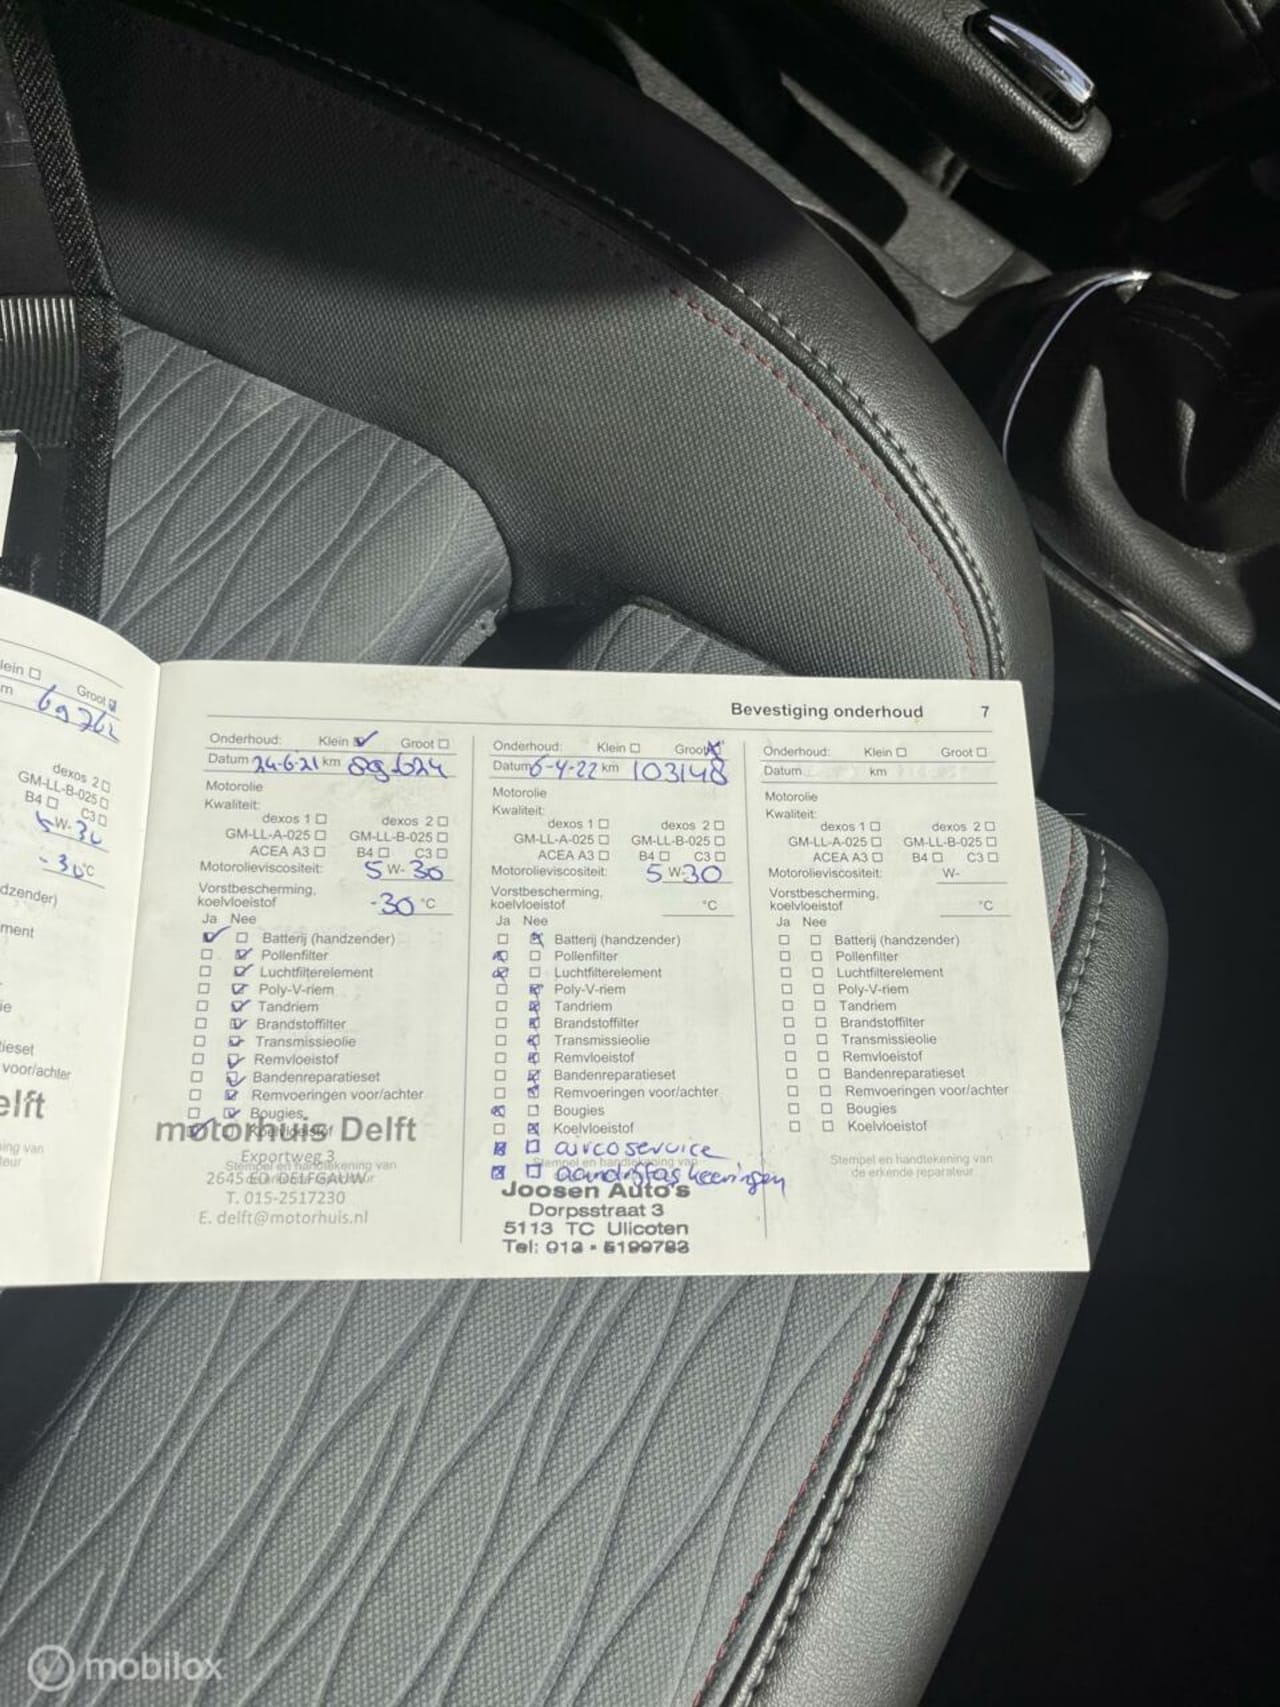 lein ☐ Groot ☑
m 69762
dexos 2 ☐
GM-LL-B-025 ☐
B4 ☐ C3 ☐
5 W- 30
-30 °C
dzender)
ment
ie
ieset
voor/achter
elft
ing van
teur
Bevestiging onderhoud 7
Onderhoud: Klein ☑ Groot ☐
Datum 24-6-21 km 89.624
Motorolie
Kwaliteit:
dexos 1 ☐ dexos 2 ☐
GM-LL-A-025 ☐ GM-LL-B-025 ☐
ACEA A3 ☐ B4 ☐ C3 ☐
Motorolieviscositeit: 5 W- 30
Vorstbescherming,
koelvloeistof -30 °C
Ja Nee
☑ ☐ Batterij (handzender)
☐ ☑ Pollenfilter
☐ ☑ Luchtfilterelement
☐ ☑ Poly-V-riem
☐ ☑ Tandriem
☐ ☑ Brandstoffilter
☐ ☑ Transmissieolie
☐ ☑ Remvloeistof
☐ ☑ Bandenreparatieset
☐ ☑ Remvoeringen voor/achter
☐ ☑ Bougies
☑ ☐ Koelvloeistof
motorhuis Delft
Exportweg 3
Stempel en handtekening van
2645 ED DELFGAUW
T. 015-2517230
E. delft@motorhuis.nl
Onderhoud: Klein ☐ Groot ☒
Datum 6-4-22 km 103148
Motorolie
Kwaliteit:
dexos 1 ☐ dexos 2 ☐
GM-LL-A-025 ☐ GM-LL-B-025 ☐
ACEA A3 ☐ B4 ☐ C3 ☐
Motorolieviscositeit: 5 W- 30
Vorstbescherming,
koelvloeistof °C
Ja Nee
☐ ☒ Batterij (handzender)
☒ ☐ Pollenfilter
☒ ☐ Luchtfilterelement
☐ ☒ Poly-V-riem
☐ ☒ Tandriem
☐ ☒ Brandstoffilter
☐ ☒ Transmissieolie
☐ ☒ Remvloeistof
☐ ☒ Bandenreparatieset
☐ ☒ Remvoeringen voor/achter
☒ ☐ Bougies
☐ ☒ Koelvloeistof
☒ ☐ aircoservice
Stempel en handtekening van
☒ ☐ aandrijfas keeringen
Joosen Auto's
Dorpsstraat 3
5113 TC Ulicoten
Tel: 013 - 5199783
Onderhoud: Klein ☐ Groot ☐
Datum km
Motorolie
Kwaliteit:
dexos 1 ☐ dexos 2 ☐
GM-LL-A-025 ☐ GM-LL-B-025 ☐
ACEA A3 ☐ B4 ☐ C3 ☐
Motorolieviscositeit: W-
Vorstbescherming,
koelvloeistof °C
Ja Nee
☐ ☐ Batterij (handzender)
☐ ☐ Pollenfilter
☐ ☐ Luchtfilterelement
☐ ☐ Poly-V-riem
☐ ☐ Tandriem
☐ ☐ Brandstoffilter
☐ ☐ Transmissieolie
☐ ☐ Remvloeistof
☐ ☐ Bandenreparatieset
☐ ☐ Remvoeringen voor/achter
☐ ☐ Bougies
☐ ☐ Koelvloeistof
Stempel en handtekening van
de erkende reparateur
mobilox